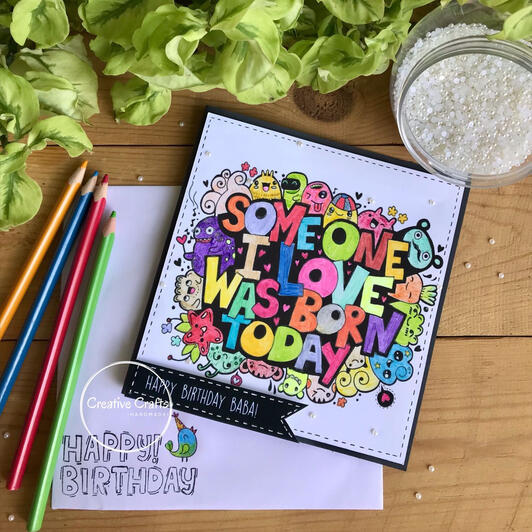 SOMEONE
I LOVE
WAS BORN
TODAY
HAPPY BIRTHDAY BABA!
Creative Crafts
HANDMADE
HAPPY!
BIRTHDAY